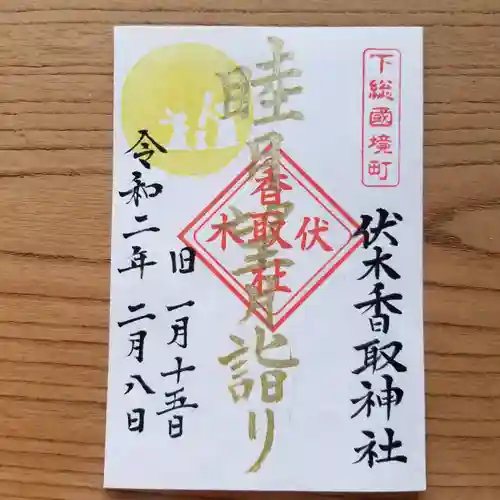 下総國境町
伏木香取神社
睦月望月詣り
伏木
香取社
旧 一月十五日
令和二年 二月八日